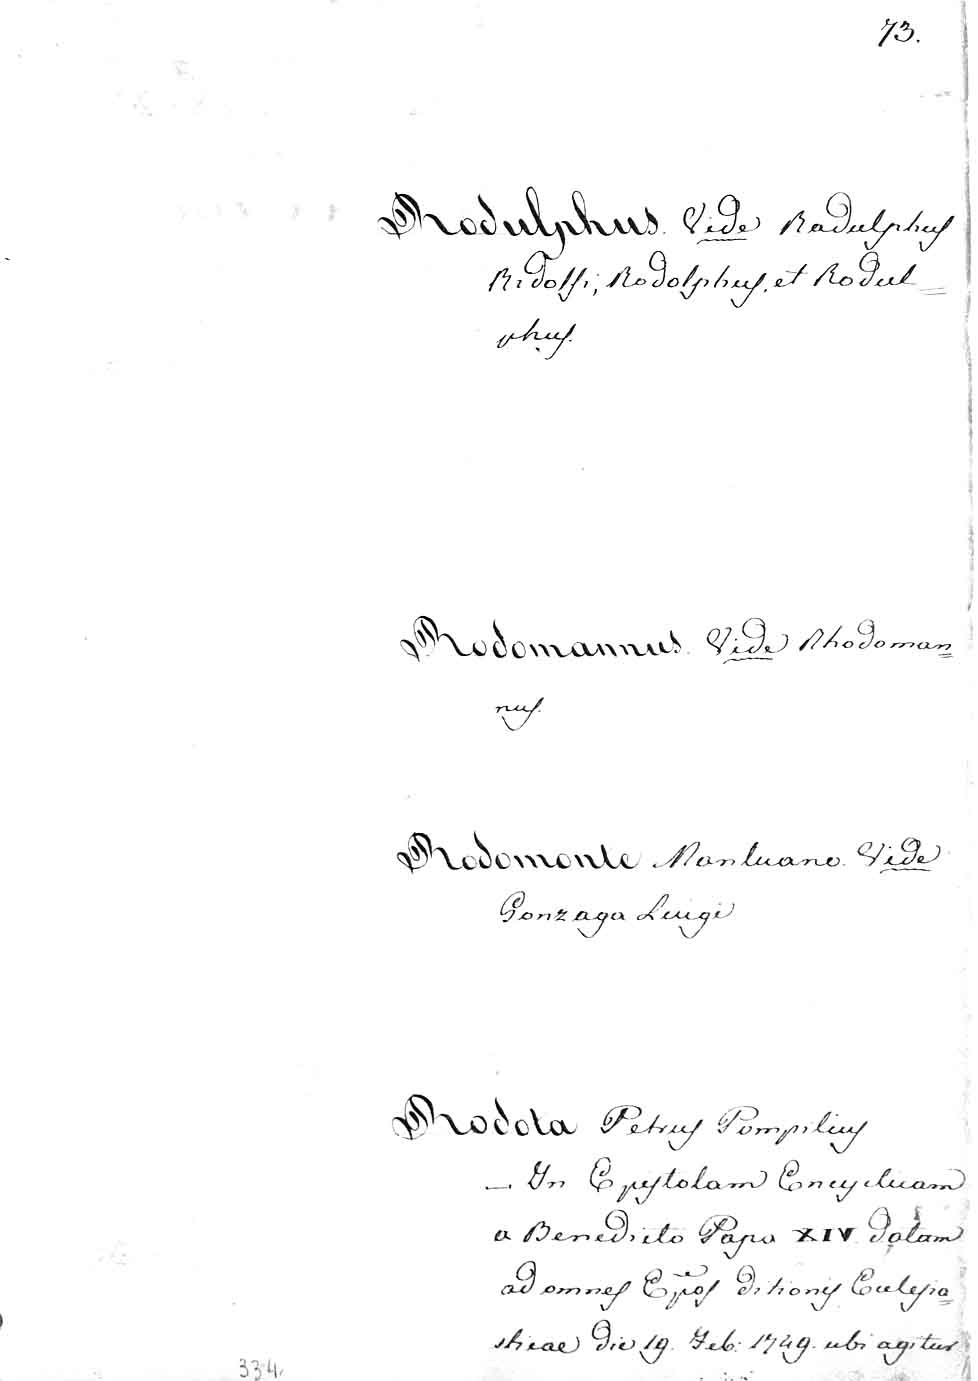 73.
Rodulphus. Vide Radulphus
Ridolfi, Rodolphus, et Rodul=
phus.
Rodomannus. Vide Rhodoman=
nus.
Rodomonte Mantuano. Vide
Gonzaga Luigi
Rodota Petrus Pompilius
— In Epistolam Encyclicam
a Benedicto Papa XIV datam
ad omnes Epos ditionis Ecclesia=
sticae die 19. Feb: 1749. ubi agitur
334.